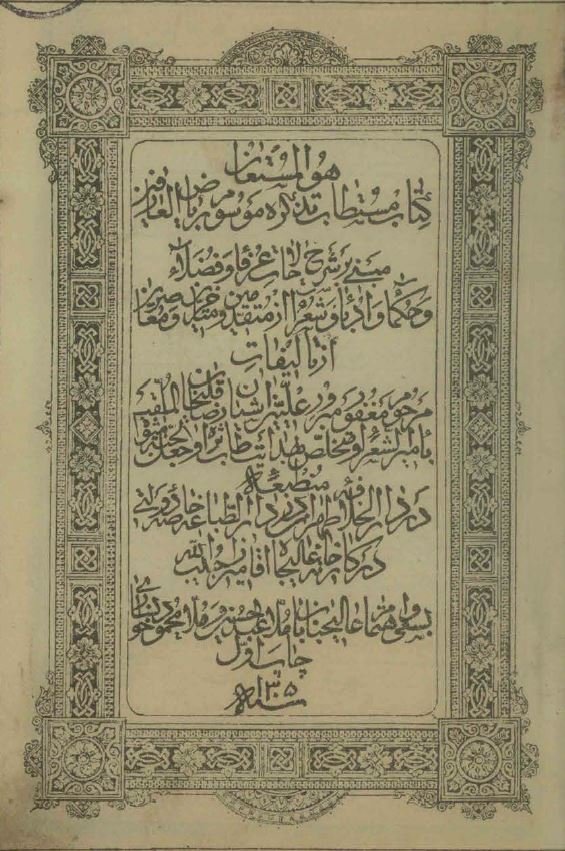 هو المستعان
کتاب مستطاب تذکره موسوم بریاض العارفین
مبنی بر شرح حالات عرفا و فضلاء
و حکما و ادبا و شعرا از متقدمین و متاخرین و معاصرین
از تالیفات
مرحوم مغفور مبرور علیین آشیان رضا قلیخان الملقب
بامیر الشعرا و متخلص بهدایت طاب ثراه و جعل الجنه مثواه
منطبعه
در دار الخلافه طهران در دار الطباعه خاصه دولتی
در کارخانه عالیجاه آقا میرزا حبیب الله
بسعی و اهتمام عالیجنابان ملا عبدالحسین و ملا محمود خوانساری
چاپ اول
سنه ۱۳۰۵